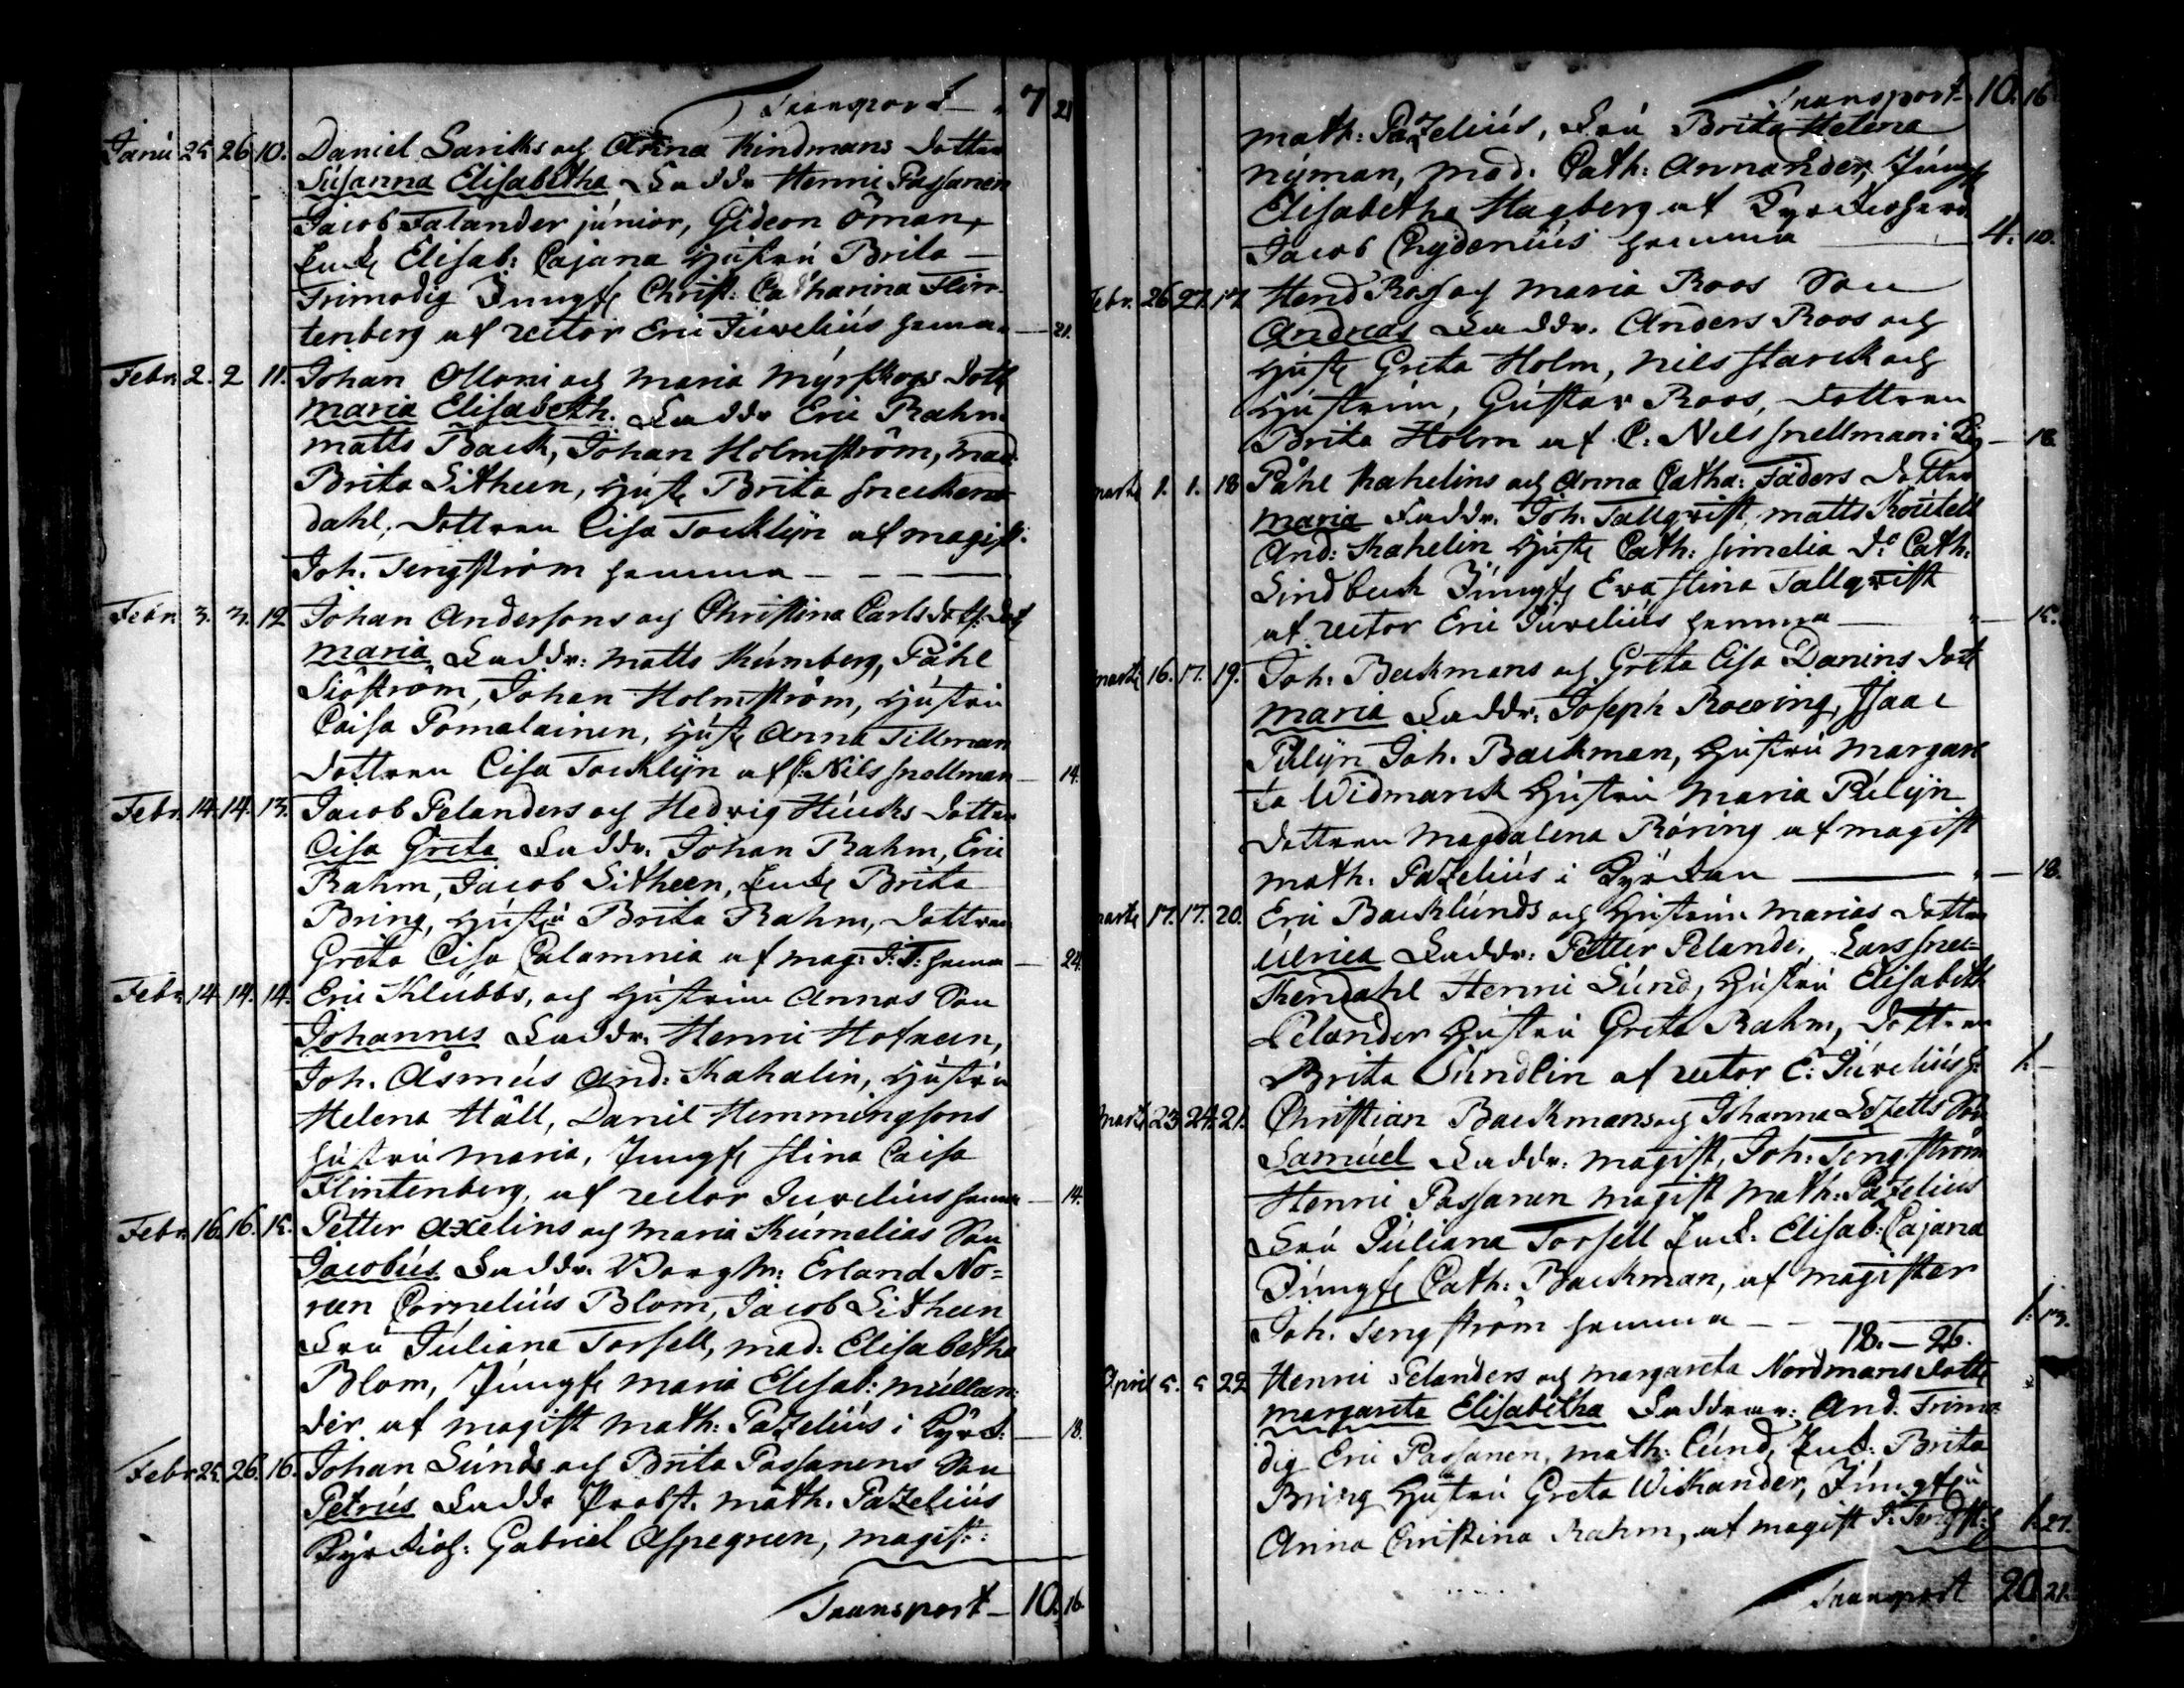 Transport 7 21
Janu 25 26 10. Daniel Sariks och Anna Kindmans dotter
Susanna Elisabetha Faddr Henric Passanen
Jacob Falander junior, Gideon Öman,
Elisab: Cajana Hustru Brita
Trimodig Jungfr Christ: Catharina Flin-
tenberg af rector Eric Juvelius hemma 21.
Febr 2. 2 11. Johan Olloni och Maria Myrskogs dottr
Maria Elisabeth. Faddr Eric Rahm
Matts Back, Johan Holmström, Mad:
Brita Litheen, Hustr Brita Snecken-
dahl, dottren Cisa Tocklijn af magist:
Joh. Tengström hemma
Febr 3. 3. 12 Johan Anderssons och Christina Carlsdotr: dottr
Maria, Faddr: Matts Kumberg, Påhl
Siöström, Johan Holmström, Hustru
Caisa Pomalainen, Hustr Anna Tillman
dottren Cisa Tocklijn af C: Nils Snellman 14.
Febr. 14. 14. 13. Jacob Pelanders och Hedvig Hucks dotter
Cisa Greta Faddr. Johan Rahm, Eric
Rahm, Jacob Litheen, Brita
Bring, Hustru Brita Rahm, dottren
Greta Cisa Calamnia af mag: J: T: hemma 24.
Febr 14 14. 14. Eric Klubbs, och Hustrun Annas Son
Johannes Faddr. Henric Hofreen,
Joh. Åsmus And: Kahalin, Hustru
Helena Häll, Daniel Hemmingsons
hustru Maria, Jungfr Stina Caisa
Flintenberg, af rector Juvelius hemma 14.
Febr. 16. 16. 15. Petter Axelins och Maria Kurnelias Son
Jacobus Faddr. Borgm: Erland No-
reen Cornelius Blom, Jacob Litheen
Fru Juliana Torsell, mad. Elisabetha
Blom, Jungfr Maria Elisab: Mullan-
der af magist Math: Pazelius i Kyrk: 18.
Febr 25. 26. 16. Johan Lunds och Brita Passanens Son
Petrus Faddr Probst. Math. Pazelius
Kyrkioh: Gabriel Aspegreen, magist:
Transport 10. 16.
Transport 10. 16
Math: Pazelius, Fru Brita Helena
Nyman, Mad. Cath: Annander, Jungf
Elisabetha Hagberg af Kyrkioherd
Jacob Chydenius hemma 4. 10.
Febr. 26 27. 17. Hend Ross och Maria Roos Son
Andreas Faddr. Anders Roos och
Hustr Greta Holm, Nils Starck och
Hustrun, Gustav Roos, dottren
Brita Holm af C: Nils Snellman i 18.
Marti 1. 1. 18 Påhl Kahelins och Anna Catha: Fäders dotter
Maria Faddr. Joh. Tallqvist, Matts
And: Kahelin Hustr Cath: Simelia do Cath.
Lindbeck Jungfr Eva Stina Tallqvist
af rector Eric Juvelius hemma 15.
Marti 16. 17. 19. Joh. Backmans och Greta Cisa Danins dottr
Maria Faddr. Joseph Roering, Isaac
Pilijn Joh. Backman, Hustru Margare
ta Widmarck Hustru Maria Pilijn
dottren Magdalena Röring af magist
Math. Pazelius i Kyrckan 18.
Marti 17. 17. 20. Eric Backlunds och Hustrun Marias dotter
Ulrica Faddr: Petter Pelander, Lars Snec-
kendahl Henric Lund, Hustru Elisabeth
Pelander Hustru Greta Rahm, dottren
Brita Sundlin af rector E: Juvelius h: 1. –
Marti 23 24. 21. Christian Backmans och Johanna Son
Samuel Faddr: Magist. Joh: Tengström
Henric Passanen Magist Math: Pazelius
Fru Juliana Torsell Elisab: Cajana
Jungfr Cath: Backman, af Magister
Joh. Tengström hemma 1. 13.
18. – 26.
April 5. 5 22 Henric Pelanders och Margareta Nordmans dottr
Margareta Elisabetha Faddrar: And. Trimo
dig Eric Passanen, Math: Lund, Brita
Bring Hustru Greta Wikander, Jungfru
Anna Christina Rahm, af magist J: Tengstr: h 1. 27.
Transport 20. 21.